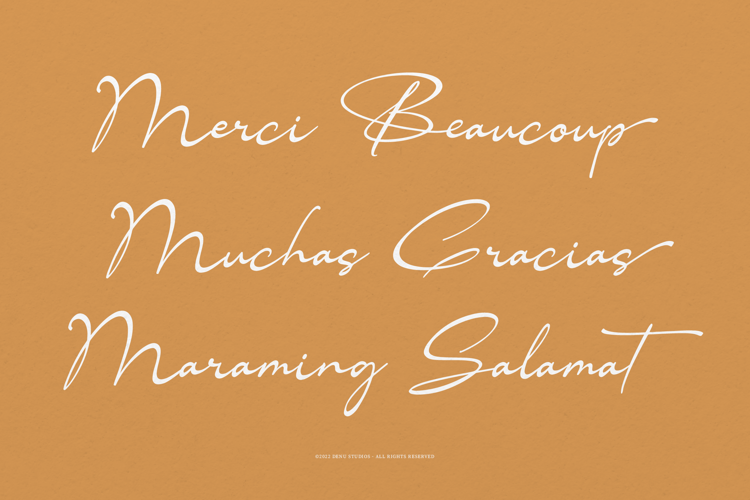 Merci Beaucoup
Muchas Gracias
Maraming Salamat
©2022 DENU STUDIOS - ALL RIGHTS RESERVED